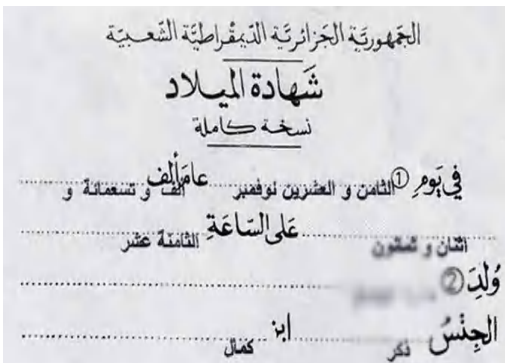 الجمهورية الجزائرية الديمقراطية الشعبية
شهادة الميلاد
نسخة كاملة
في يوم ① الثامن و العشرين نوفمبر عام ألف ألف و تسعمائة و
اثنان و ثمانون على الساعة الثامنة عشر
ولد ②
الجنس ذكر ابن كمال